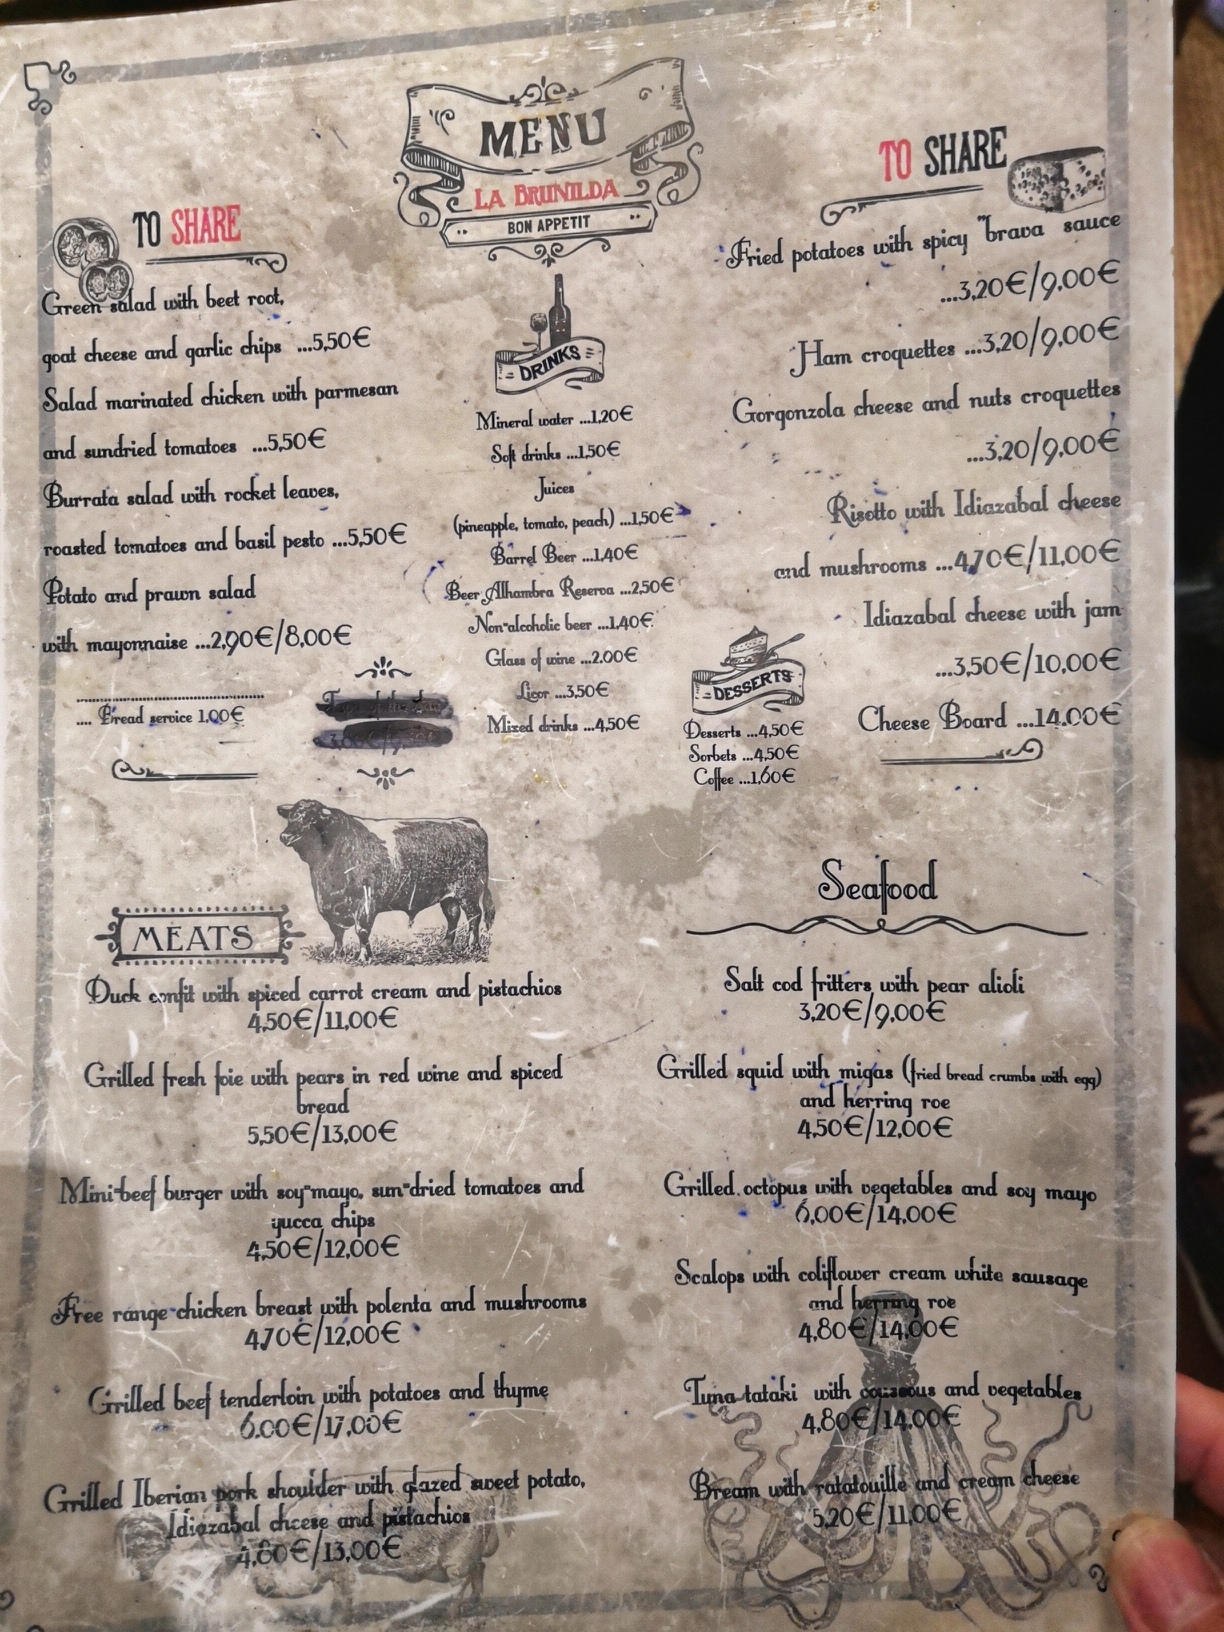 MENU
LA BRUNILDA
BON APPETIT
TO SHARE
Green salad with beet root,
goat cheese and garlic chips ...5,50€
Salad marinated chicken with parmesan
and sundried tomatoes ...5,50€
Burrata salad with rocket leaves,
roasted tomatoes and basil pesto ...5,50€
Potato and prawn salad
with mayonnaise ...2,90€/8,00€
.... Bread service 1,00€
DRINKS
Mineral water ...1,20€
Soft drinks ...1,50€
Juices
(pineapple, tomato, peach) ...1,50€
Barrel Beer ...1,40€
Beer Alhambra Reserva ...2,50€
Non-alcoholic beer ...1,40€
Glass of wine ...2,00€
Licor ...3,50€
Mixed drinks ...4,50€
DESSERTS
Desserts ...4,50€
Sorbets ...4,50€
Coffee ...1,60€
TO SHARE
Fried potatoes with spicy "brava sauce
...3,20€/9,00€
Ham croquettes ...3,20/9,00€
Gorgonzola cheese and nuts croquettes
...3,20/9,00€
Risotto with Idiazabal cheese
and mushrooms ...4,70€/11,00€
Idiazabal cheese with jam
...3,50€/10,00€
Cheese Board ...14,00€
MEATS
Duck confit with spiced carrot cream and pistachios
4,50€/11,00€
Grilled fresh foie with pears in red wine and spiced
bread
5,50€/13,00€
Mini-beef burger with soy-mayo, sun-dried tomatoes and
yucca chips
4,50€/12,00€
Free range chicken breast with polenta and mushrooms
4,70€/12,00€
Grilled beef tenderloin with potatoes and thyme
6,00€/17,00€
Grilled Iberian pork shoulder with glazed sweet potato,
Idiazabal cheese and pistachios
4,80€/13,00€
Seafood
Salt cod fritters with pear alioli
3,20€/9,00€
Grilled squid with migas (fried bread crumbs with egg)
and herring roe
4,50€/12,00€
Grilled octopus with vegetables and soy mayo
6,00€/14,00€
Scalops with coliflower cream white sausage
and herring roe
4,80€/14,00€
Tuna tataki with couscous and vegetables
4,80€/14,00€
Bream with ratatouille and cream cheese
5,20€/11,00€